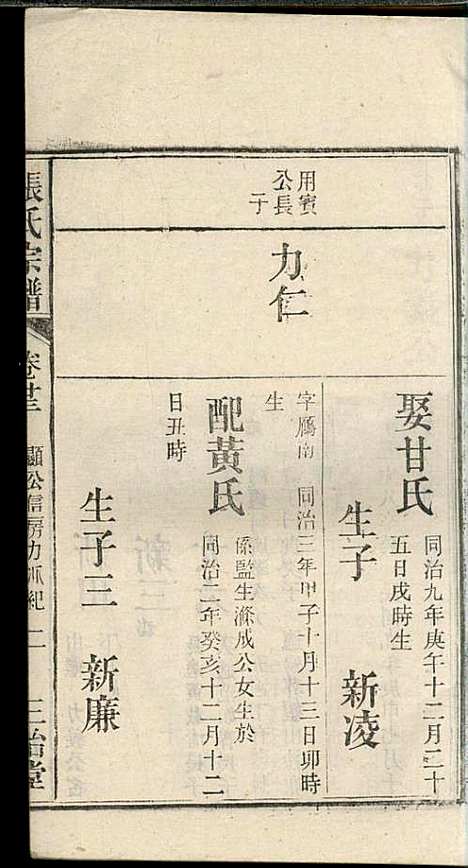 用賓
公長
子
力仁
娶甘氏
同治九年庚午十二月二十
五日戌時生
生子
新凌
字鴈南
同治三年甲子十月十三日卯時
生
配黃氏
係監生滌成公女生於
同治二年癸亥十二月十二
日丑時
生子三
新廉
張氏宗譜
卷廿三
顯公信房力派紀
二
三治堂